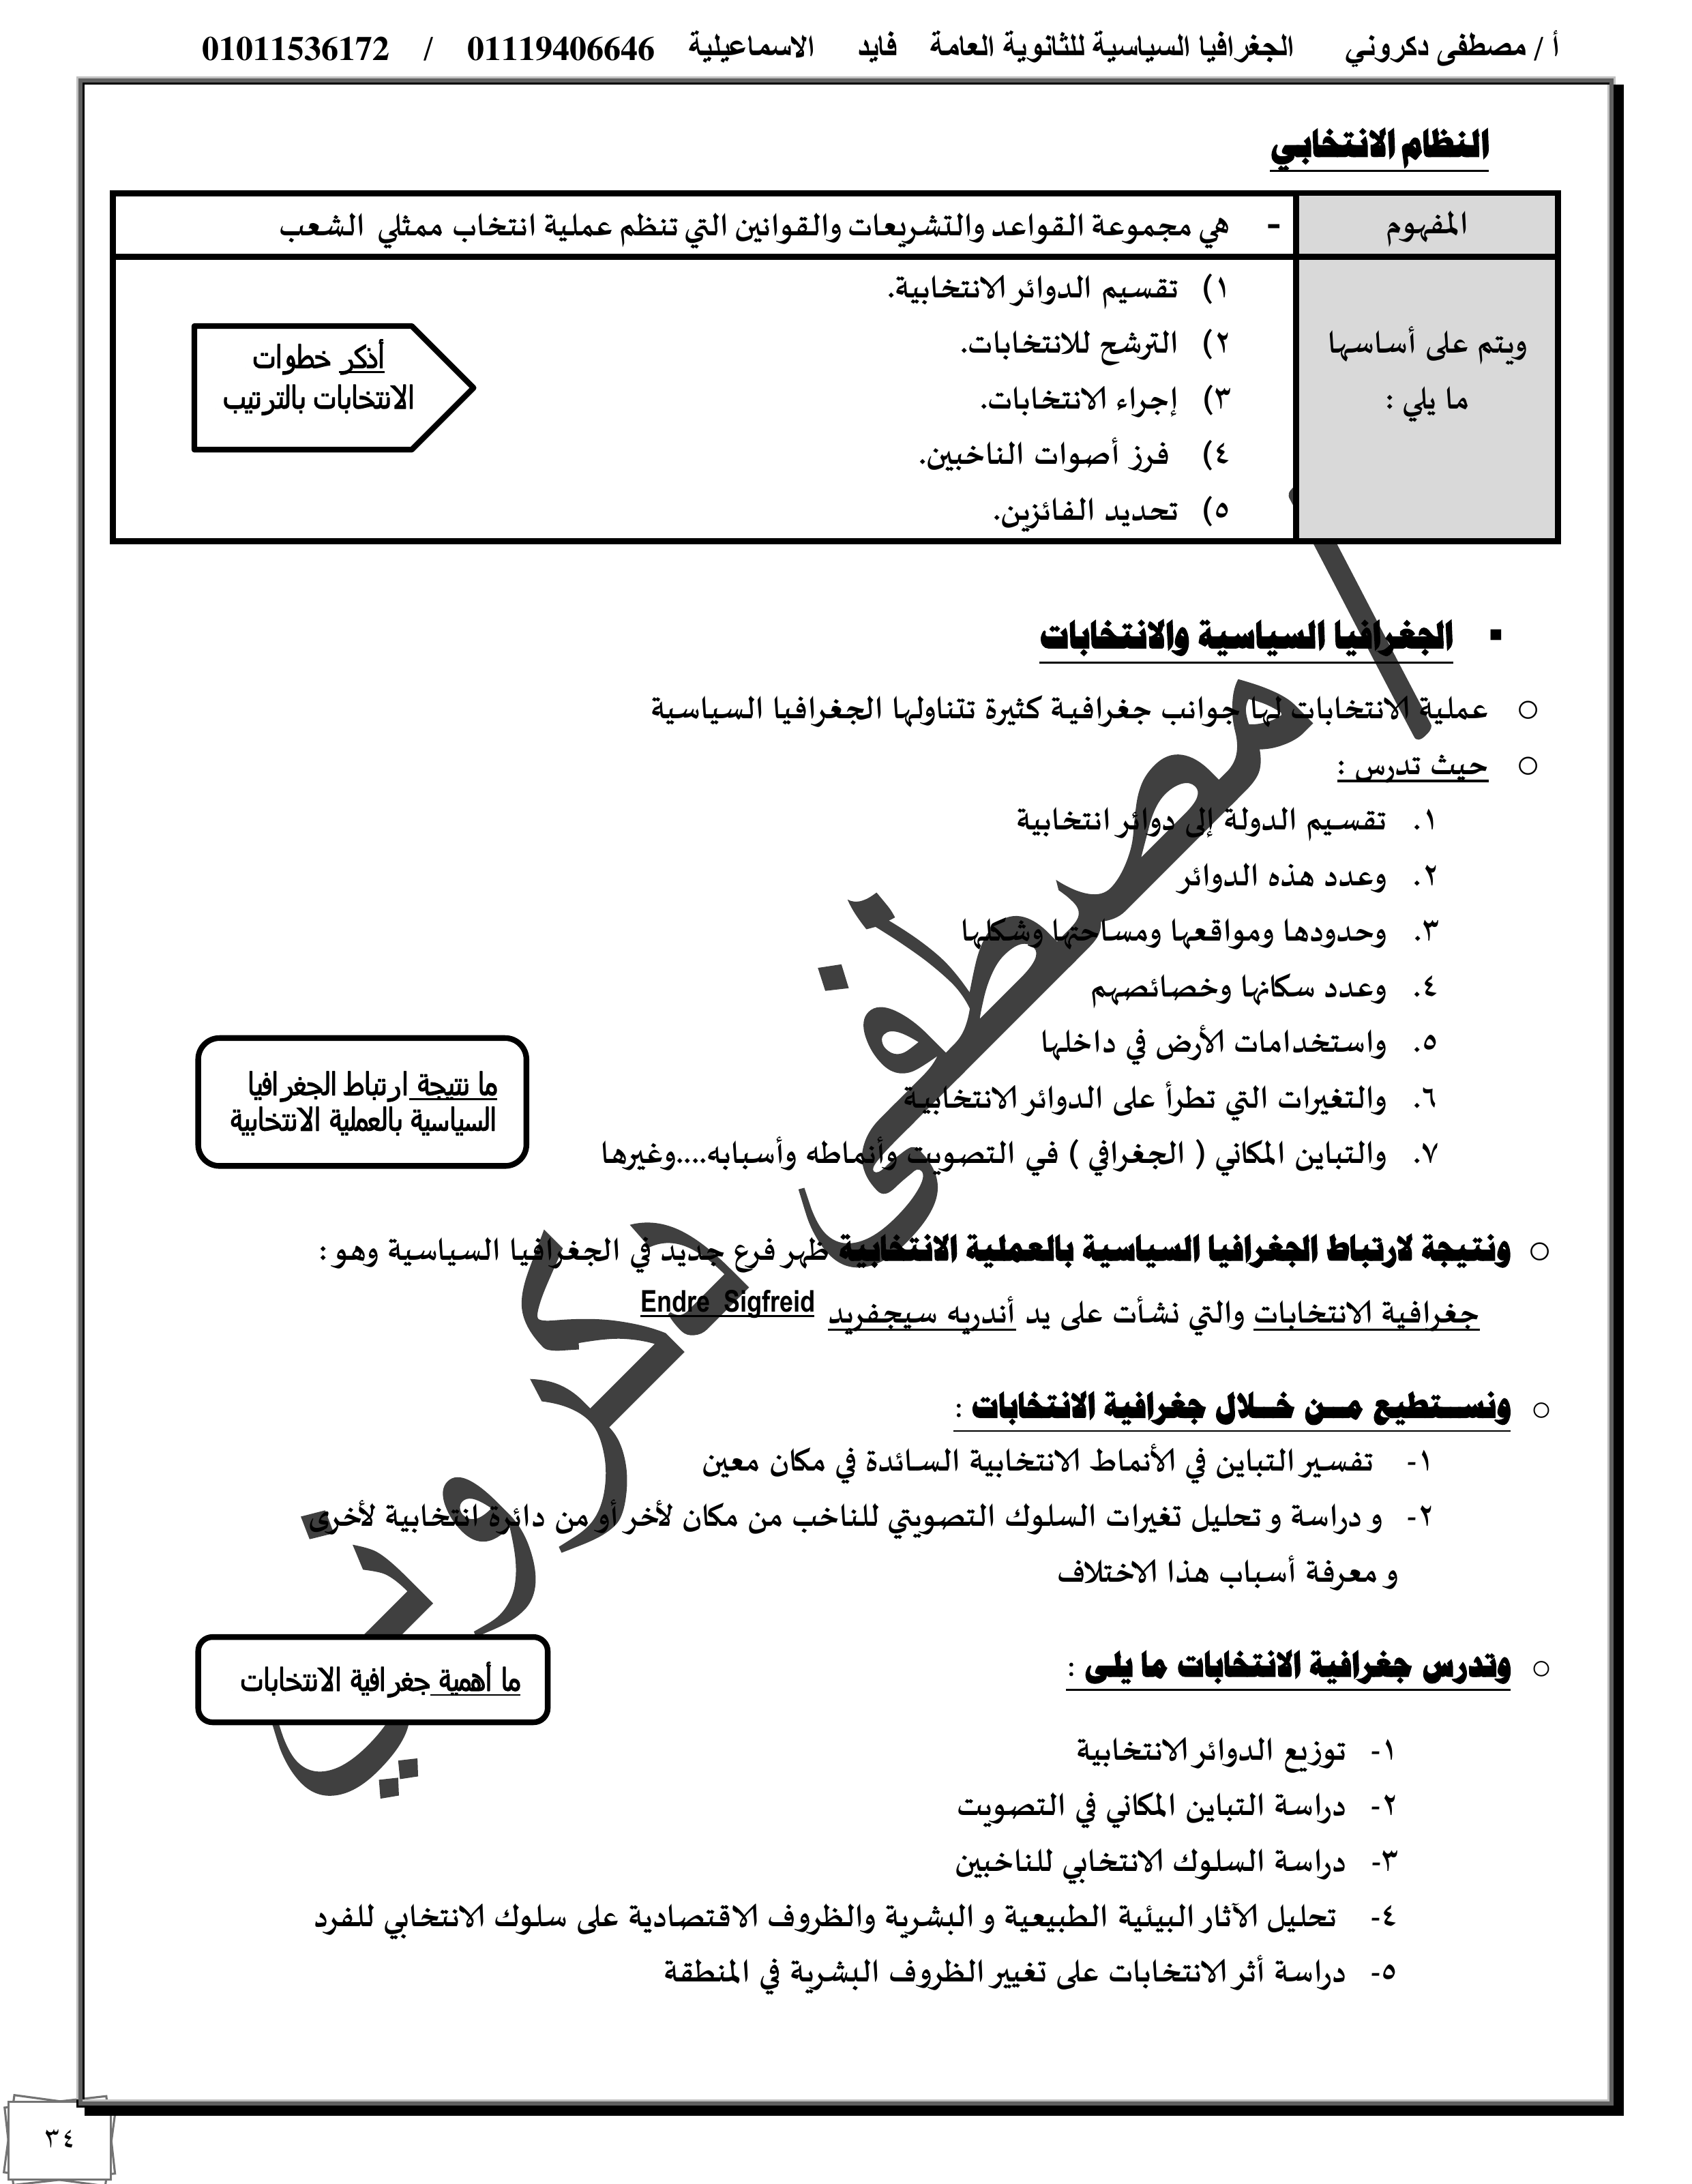 أ / مصطفى دكروني الجغرافيا السياسية للثانوية العامة فايد الاسماعيلية 01119406646 / 01011536172
النظام الانتخابي
المفهوم
- هي مجموعة القواعد والتشريعات والقوانين التي تنظم عملية انتخاب ممثلي الشعب
ويتم على أساسها
ما يلي :
١) تقسيم الدوائر الانتخابية.
٢) الترشح للانتخابات.
٣) إجراء الانتخابات.
٤) فرز أصوات الناخبين.
٥) تحديد الفائزين.
أذكر خطوات
الانتخابات بالترتيب
▪ الجغرافيا السياسية والانتخابات
○ عملية الانتخابات لها جوانب جغرافية كثيرة تتناولها الجغرافيا السياسية
○ حيث تدرس :
١. تقسيم الدولة إلى دوائر انتخابية
٢. وعدد هذه الدوائر
٣. وحدودها ومواقعها ومساحتها وشكلها
٤. وعدد سكانها وخصائصهم
٥. واستخدامات الأرض في داخلها
٦. والتغيرات التي تطرأ على الدوائر الانتخابية
٧. والتباين المكاني ( الجغرافي ) في التصويت وأنماطه وأسبابه....وغيرها
ما نتيجة ارتباط الجغرافيا
السياسية بالعملية الانتخابية
○ ونتيجة لارتباط الجغرافيا السياسية بالعملية الانتخابية ظهر فرع جديد في الجغرافيا السياسية وهو :
جغرافية الانتخابات والتي نشأت على يد أندريه سيجفريد Endre Sigfreid
○ ونستطيع من خلال جغرافية الانتخابات :
١- تفسير التباين في الأنماط الانتخابية السائدة في مكان معين
٢- و دراسة و تحليل تغيرات السلوك التصويتي للناخب من مكان لأخر أو من دائرة انتخابية لأخرى
و معرفة أسباب هذا الاختلاف
○ وتدرس جغرافية الانتخابات ما يلى :
ما أهمية جغرافية الانتخابات
١- توزيع الدوائر الانتخابية
٢- دراسة التباين المكاني في التصويت
٣- دراسة السلوك الانتخابي للناخبين
٤- تحليل الآثار البيئية الطبيعية و البشرية والظروف الاقتصادية على سلوك الانتخابي للفرد
٥- دراسة أثر الانتخابات على تغيير الظروف البشرية في المنطقة
أ / مصطفى دكروني
٣٤